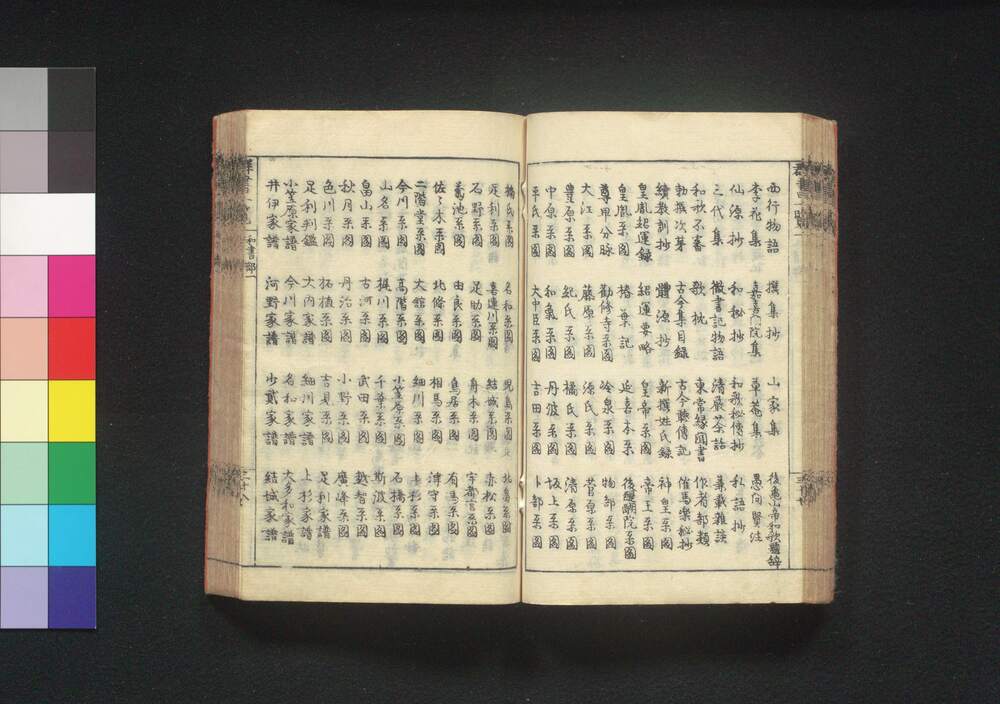 西行物語 撰集抄 山家集 後鳥羽帝和歌
李花集 嘉喜院集 草菴集 愚问賢注
仙源抄 和秘抄 和歌秘傳抄 和語抄
三代集 徹書記物語 清嚴茶話 兼載雜談
和歌不審 歌枕 東常緣圓書 作者部類
勅撰次第 古今集目錄 古今藤傳記 催馬樂秘抄
續教訓抄 體源抄 新撰姓氏錄 神皇系圖
皇胤紹運錄 紹運要略 皇帝系圖 帝王系圖
皇胤系圖 椿葉記 延喜本系 後醍醐院系圖
尊卑分脉 勸修寺系圖 冷泉系圖 物部系圖
大江系圖 藤原系圖 源氏系圖 菅原系圖
豊原系圖 紀氏系圖 橘氏系圖 清原系圖
中原系圖 和氣系圖 丹波系圖 坂上系圖
平氏系圖 大中臣系圖 吉田系圖 卜部系圖
橘氏系圖 名和系圖 兒島系圖 北畠系圖
足利系圖 喜連川系圖 結城系圖 赤松系圖
石野系圖 足助系圖 舟木系圖 宇都宮系圖
菊池系圖 由良系圖 鳥居系圖 有馬系圖
佐々木系圖 北條系圖 相馬系圖 津守系圖
二階堂系圖 大館系圖 細川系圖 上杉系圖
今川系圖 高階系圖 小笠原系圖 石橋系圖
山名系圖 梶川系圖 千葉系圖 斯波系圖
畠山系圖 古河系圖 武田系圖 越智系圖
秋月系圖 丹治系圖 小野系圖 廣條系圖
色川系圖 柘植系圖 吉見系圖 足利家譜
足利判鑑 大内家譜 細川家譜 上杉家譜
小笠原家譜 今川家譜 名和家譜 大多和家譜
井伊家譜 河野家譜 少貳家譜 結城家譜
和書部一